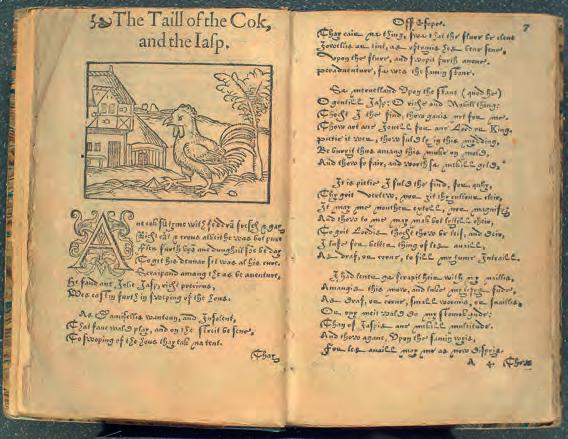 The Taill of the Cok,
and the Iasp.
Ane cok
Richt cant & crous albeit he was bot pure
To get his dennar set was al his cure.
Scraipand amang the as be auenture,
He fand ane Jolie Jasp, richt precious,
Wes castin furth in sweping of the hous.
As Damisellis wantoun, and Insolent,
That fane wald play, and on the streit be sene,
To swoping of the hous thay tak na tent.
Thay
Off Esope.
7
Thay cair na thing, swa that the flure be clene
Jowellis ar tint, as oftymis hes bene sene,
Upon the flure, and swopit furth anone.
Peradventure, sa wes the samin stone.
Sa mervelland Upon the stane (quod he)
O gentill Jasp: O riche and Nobill thing:
Thocht I the find, thow ganis not for me.
Thow art ane Jowell for ane Lord or King.
Pietie it wer, thow suld ly in this midding,
Be buryit thus amang this muke on mold,
And thow so fair, and worth sa mekill gold.
It is pietie I suld the find, for quhy,
Thy greit vertew, nor zit thy cullour cleir,
It may me nouther extoll, nor magnify:
And thow to me may mak bot lytill cheir,
To greit Lordis thocht thow be leif, and deir,
I lufe fer better thing of les auaill,
As draf, or corne, to fill my tume Intraill.
I had leuer ga scrapit heir with my naillis,
Amangis this mow, and luke my lyfys fude,
As draf, or corne, small wormis, or snaillis,
Or ony meit wald do my stomok gude:
Than of Jaspis ane mekill multitude.
And thow agane, Upon the samin wyis,
For les auaill may me as now dispyis.
A 4